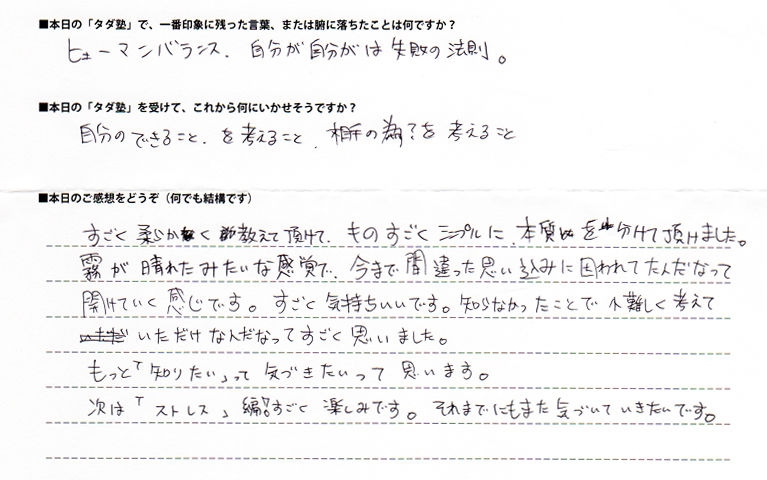 ■本日の「タダ塾」で、一番印象に残った言葉、または腑に落ちたことは何ですか？
ヒューマンバランス、自分が自分がは失敗の法則。
■本日の「タダ塾」を受けて、これから何にいかせそうですか？
自分のできること、を考えること、相手の為？を考えること
■本日のご感想をどうぞ（何でも結構です）
すごく柔らかく教えて頂けて、ものすごくシンプルに、本質を分けて頂けました。
霧が晴れたみたいな感覚で、今まで間違った思い込みに囚われてたんだなって
開けていく感じです。すごく気持ちいいです。知らなかったことで小難しく考えて
いただけなんだなってすごく思いました。
もっと「知りたい」って気づきたいって思います。
次は「ストレス」編？すごく楽しみです。それまでにもまた気づいていきたいです。